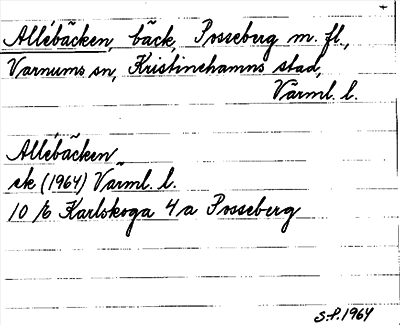 Allébäcken, bäck, Posseberg m. fl.,
Varnums sn, Kristinehamns stad,
Värml. l.
Allébäcken
ek (1964) Värml. l.
10 /6 Karlskoga 4a Posseberg
S.P. 1964